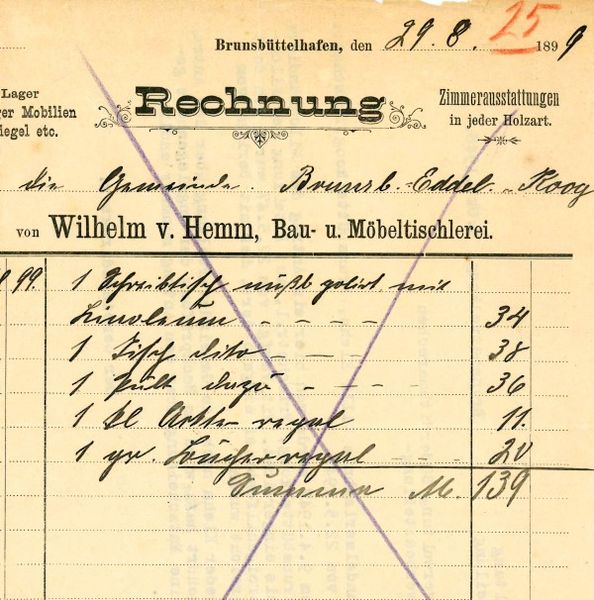 25
Brunsbüttelhafen, den 29. 8. 1899
Lager
ger Mobilien
iegel etc.
Rechnung
Zimmerausstattungen
in jeder Holzart.
die Gemeinde. Brunsb.-Eddel.-Koog
von Wilhelm v. Hemm, Bau- u. Möbeltischlerei.
99. 1 Schreibtisch nußb polirt mit
Linoleum - - - - 34
1 Tisch dito - - - 38
1 Pult dazu - - - - 36
1 kl Akten regal 11.
1 gr. Bücherregal - - - 20
Summa M. 139